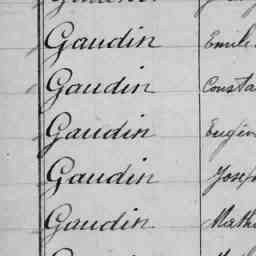 Gaudin Emile
Gaudin Consta
Gaudin Eugén
Gaudin Josep
Gaudin Math